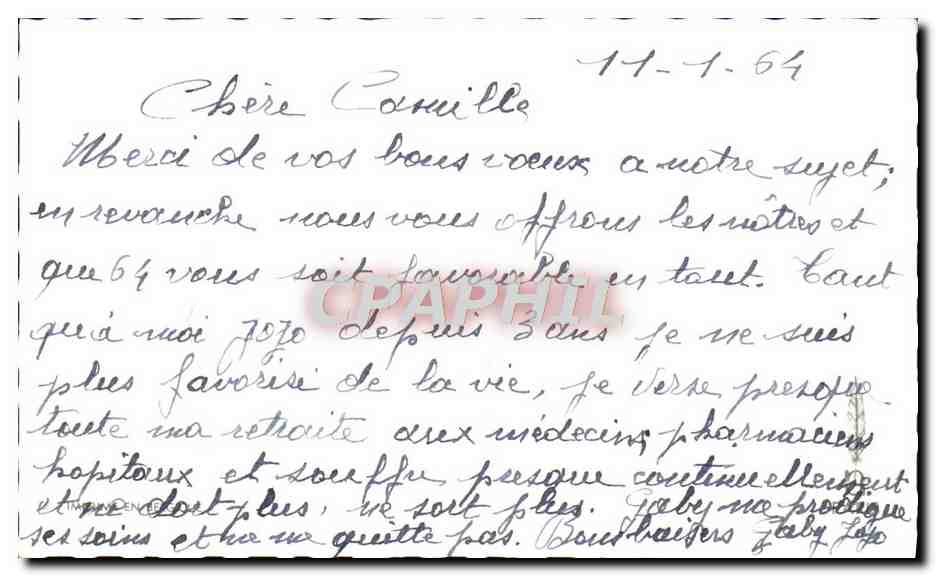 11-1-64
Chère Camille
Merci de vos bons voeux a notre sujet;
en revanche nous vous offrons les nôtres et
que 64 vous soit favorable en tout. Tant
CPAPHIL
qu'à moi Jojo depuis 3 ans je ne suis
plus favorisé de la vie, je verse presque
toute ma retraite aux médecins, pharmaciens
hopitaux et souffre presque continuellement
et ne dort plus, ne sort plus. Gaby me prodigue
ses soins et ne me quitte pas. Bons baisers Gaby Jojo